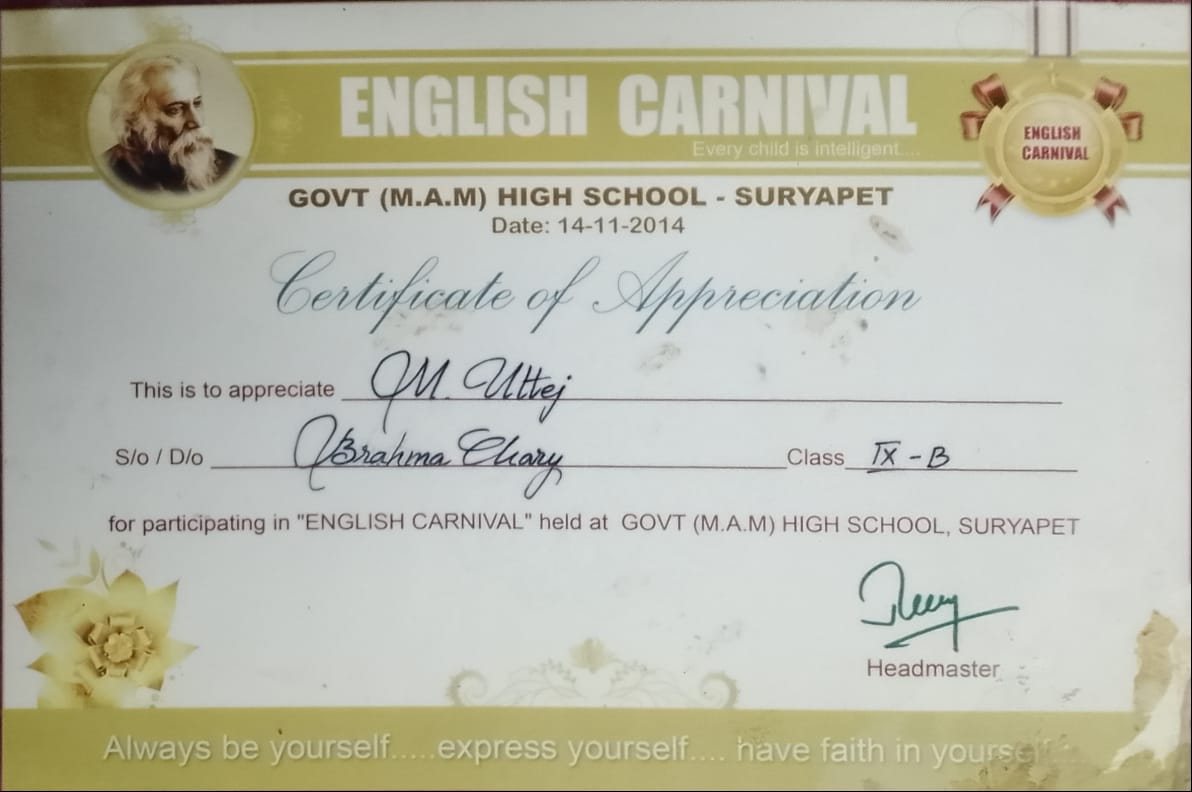 ENGLISH CARNIVAL
Every child is intelligent....
ENGLISH
CARNIVAL
GOVT (M.A.M) HIGH SCHOOL - SURYAPET
Date: 14-11-2014
Certificate of Appreciation
This is to appreciate M. Uttej
S/o / D/o Brahma Chary Class IX - B
for participating in "ENGLISH CARNIVAL" held at GOVT (M.A.M) HIGH SCHOOL, SURYAPET
Headmaster
Always be yourself.....express yourself.... have faith in yourself....